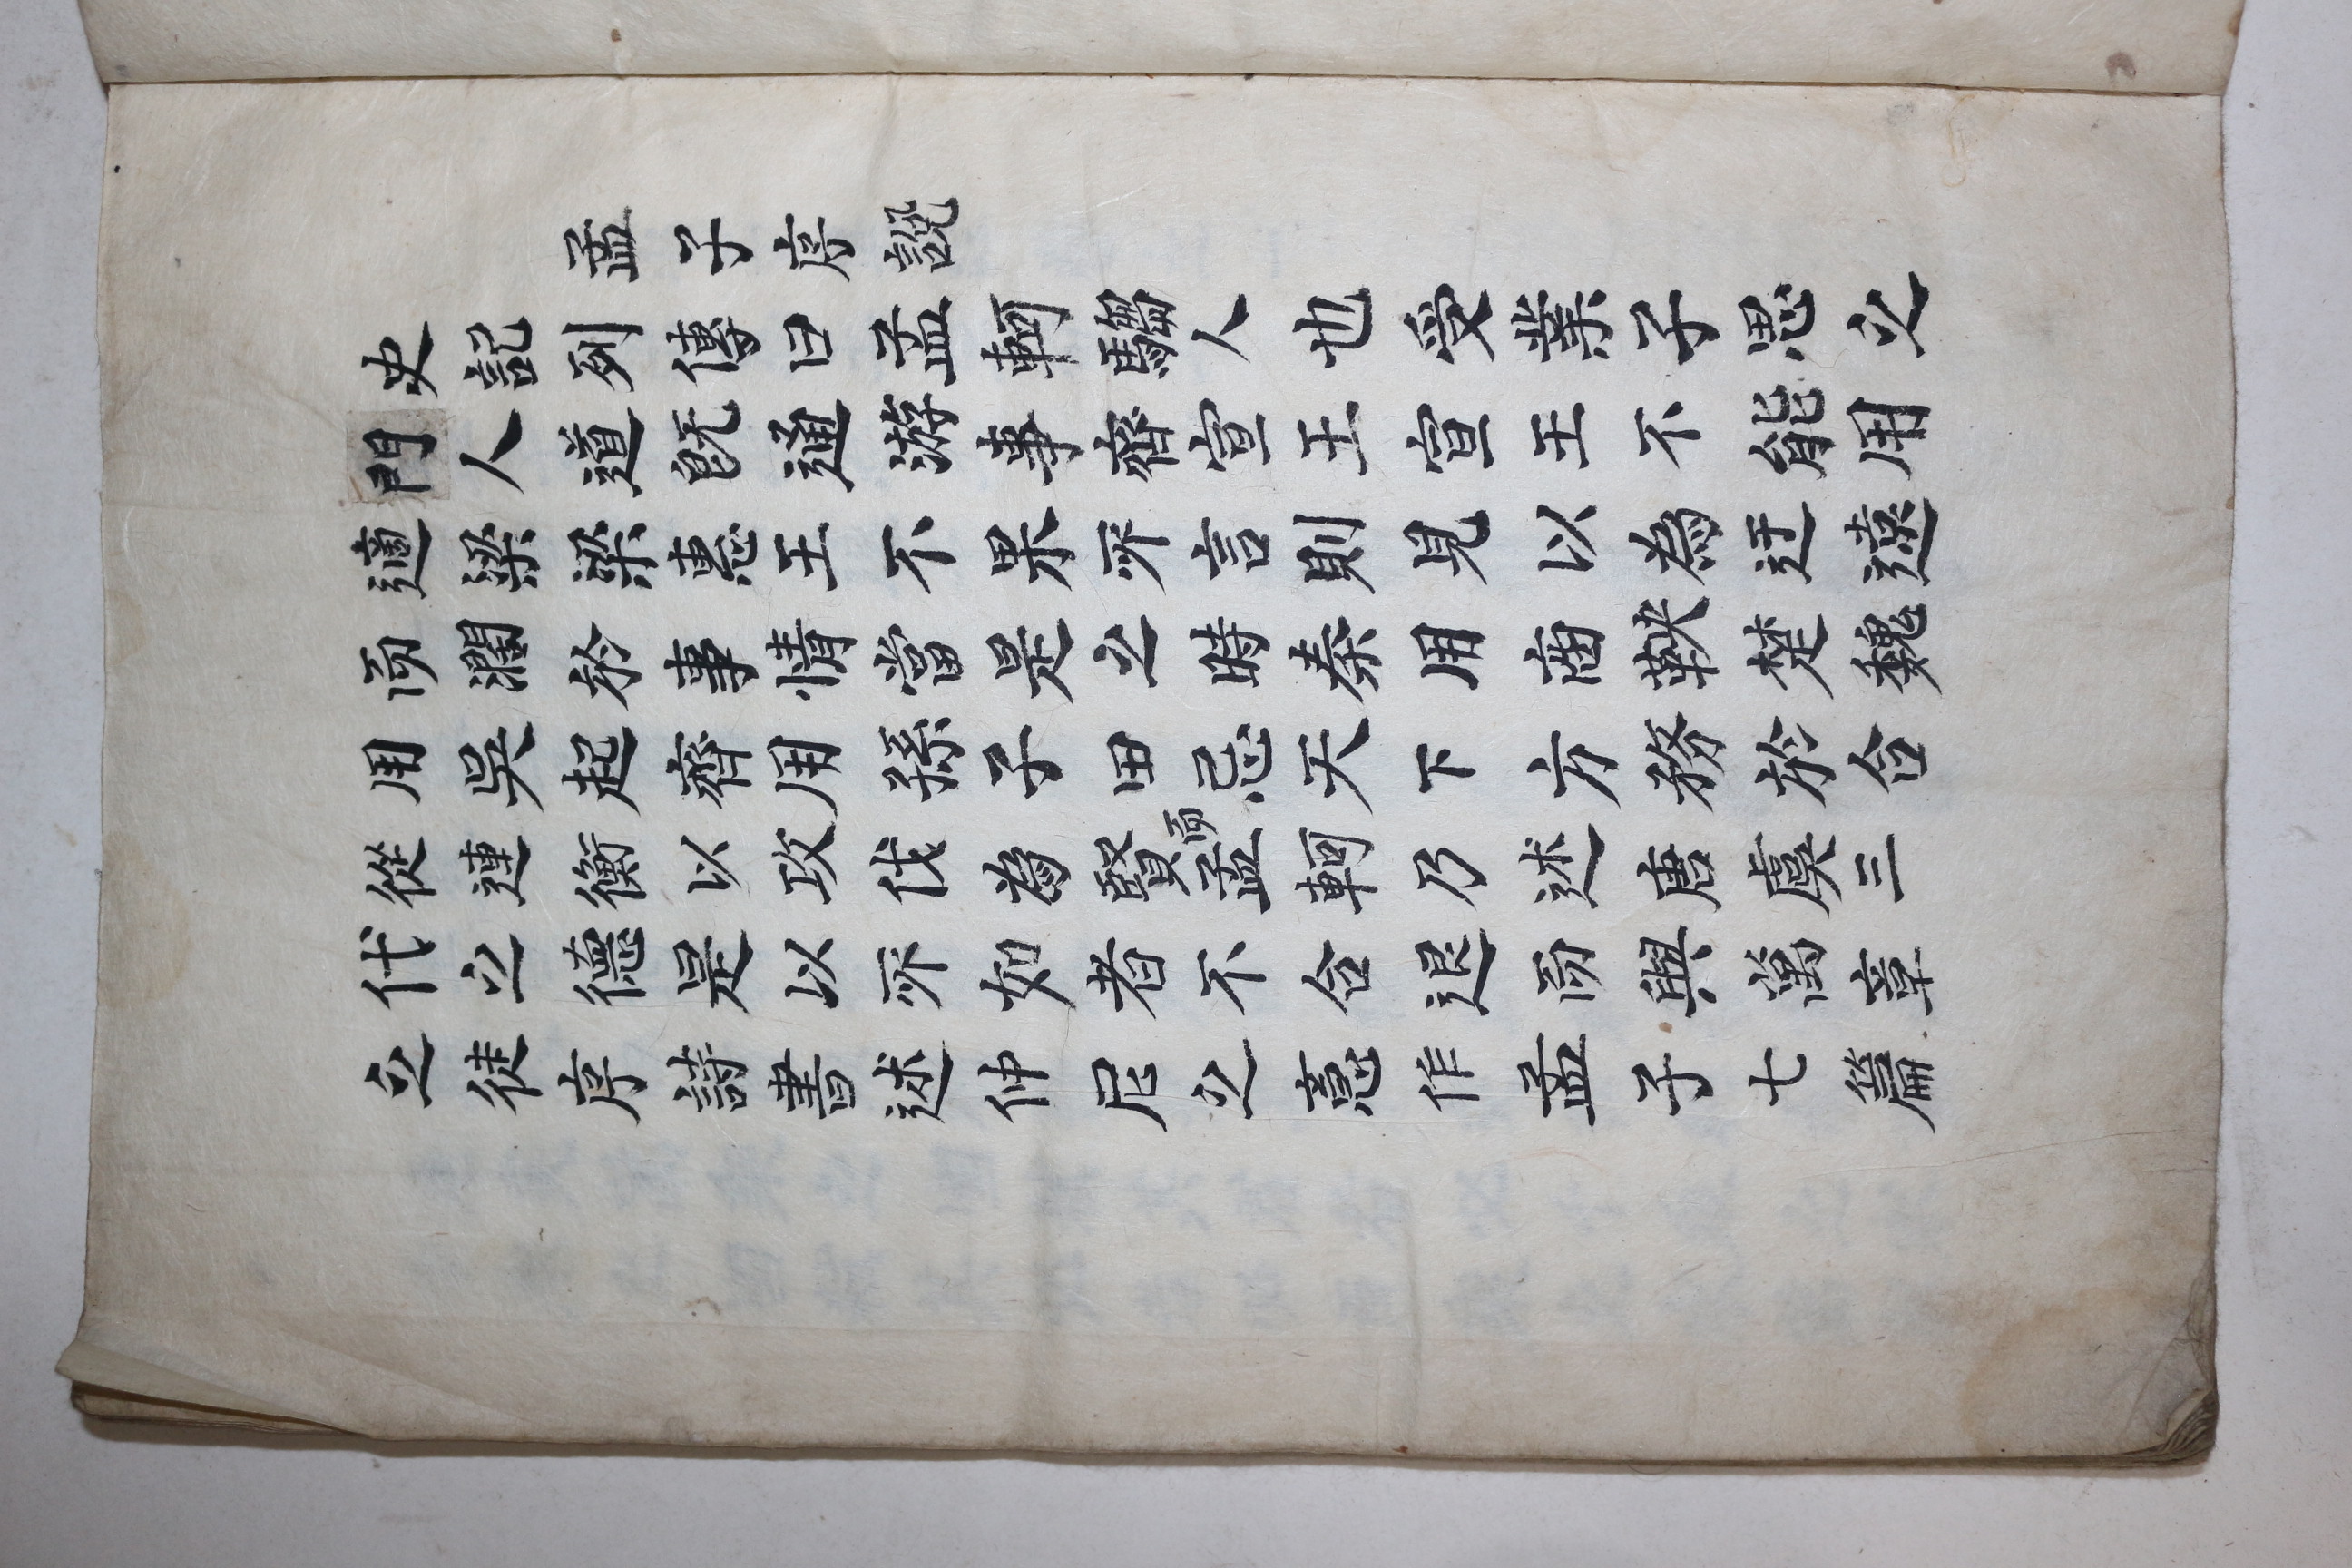 孟子序說
史記列傳曰孟軻騶人也受業子思之
門人道既通游事齊宣王宣王不能用
適梁梁惠王不果所言則見以為迂遠
而濶於事情當是之時秦用商鞅楚魏
用吳起齊用孫子田忌天下方務於合
從連衡以攻伐為賢而孟軻乃述唐虞三
代之德是以所如者不合退而與萬章
之徒序詩書述仲尼之意作孟子七篇